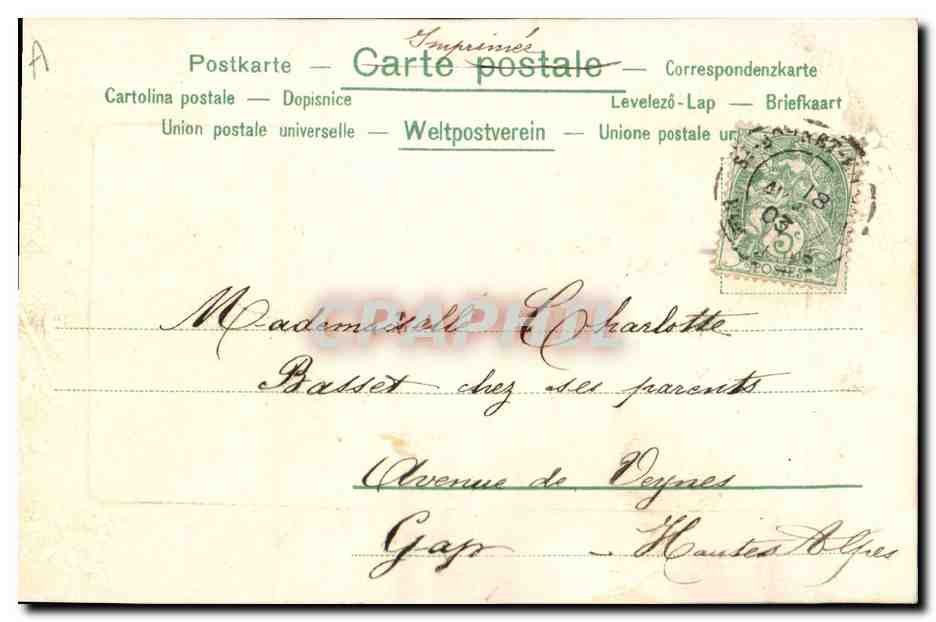 A
Imprimée
Postkarte — Carte postale — Correspondenzkarte
Cartolina postale — Dopisnice Levelező-Lap — Briefkaart
Union postale universelle — Weltpostverein — Unione postale un
18
03
5c
POSTES
CPAPHIL
Mademoiselle Charlotte
Basset chez ses parents
Avenue de Veynes
Gap - Hautes Alpes